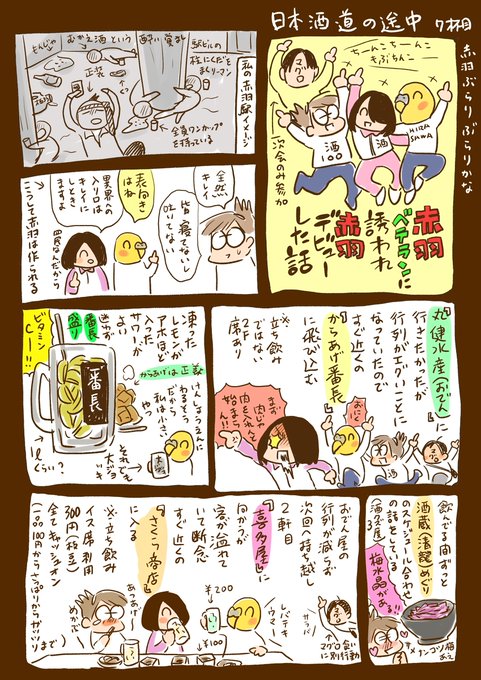 日本酒道の途中 7杯目
赤羽ぶらりぶらりかな
ちーんこちーんこ
もぶちんこー
酒
100
酒
HIRA
SAWA
一次会のみ参加
赤羽
ベテランに
誘われ
赤羽
デビュー
した話
私の赤羽駅イメージ
駅ビルの
柱にくだを
まくリーマン
酔い覚まし
むかえ酒という
正装
全員ワンカップ
を持っている
全然
キレイ
皆寝てないし
吐いてない
表向き
はね
異界の
入り口は
キレイに
しとき
ますよ
四民なんだから
こうして赤羽は作られる
丸健水産(おでん)に
行きたかったが
行列がエグいことに
なっていたので
すぐ近くの
からあげ番長
に飛び込む
※立ち飲み
ではない
2F
席あり
おにく
まず
肉じゃ
肉を入れんと
始まらん!!
凍った
レモンが
アホほど
入った
サワーが
よい
迷わず
番長
盛り
ビタミン
C――!!
一番長
からあげは正義
けんじょうえんに
わるそう
だから
私は小さ
いやつ
それでも
大ジョッキ
1ℓ
くらい?
おでん屋の
行列が減らず
次回へ持ち越し
2軒目
『喜多屋』に
向かうが
客が溢れて
いて断念
すぐ近くの
『さくら商店』
に入る
※立ち飲み
イス席別用
300円(税込)
全てキャッシュオン
一品100円からさっぱりからガッツリまで
あつあげ
めかぶ
¥200
¥100
レバテキ
ウマー
サラバ
マグロ食い
に別行動
飲んでる間ずっと
酒蔵(清龍)めぐり
のスケジュール合わせ
の話をしている
梅水晶がある!!
サメナンコツ梅
あえ